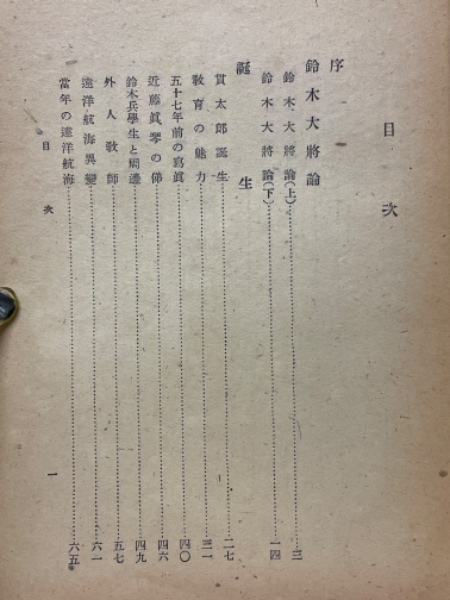 目次
序
鈴木大將論
鈴木大將論(上)……三
鈴木大將論(下)……一四
誕生
貫太郎誕生……二七
教育の魅力……三一
五十七年前の寫眞……四〇
近藤眞琴の俤……四六
鈴木兵學生と周邊……四九
外人教師……五七
遠洋航海異變……六一
當年の遠洋航海……六五
目次
一